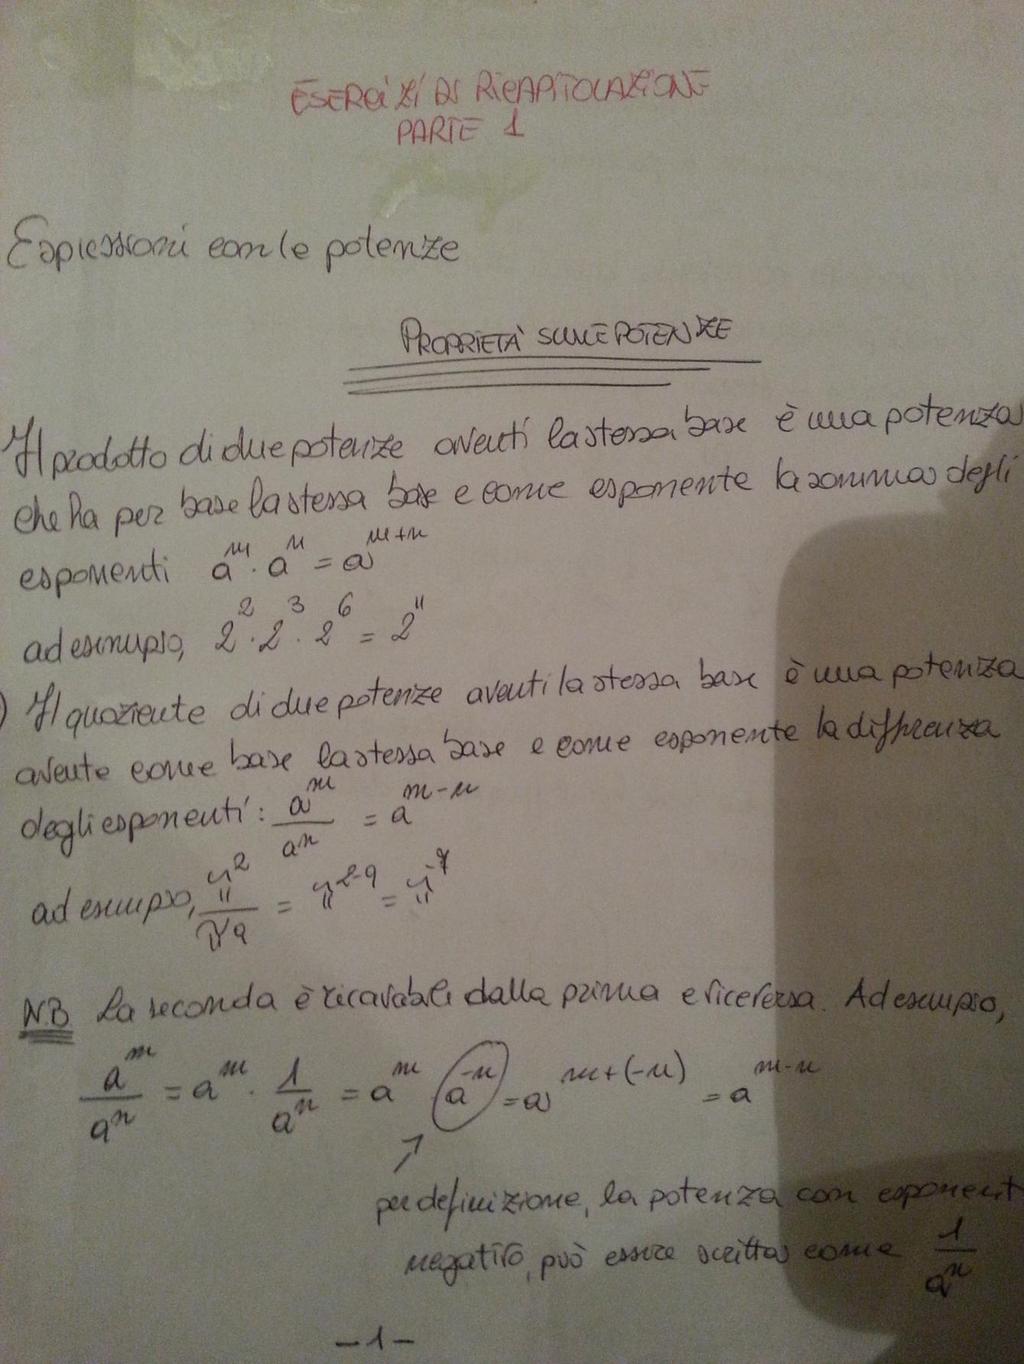 ESERCIZI DI RICAPITOLAZIONE
PARTE 1
Espressioni con le potenze
PROPRIETÀ SULLE POTENZE
Il prodotto di due potenze aventi la stessa base è una potenza
che ha per base la stessa base e come esponente la somma degli
esponenti a^m · a^n = a^{m+n}
ad esempio, 2^2 · 2^3 · 2^6 = 2^11
) Il quoziente di due potenze aventi la stessa base è una potenza
avente come base la stessa base e come esponente la differenza
degli esponenti: a^m / a^n = a^{m-n}
ad esempio, π^2 / π^9 = π^{2-9} = π^{-7}
N.B La seconda è ricavabile dalla prima e viceversa. Ad esempio,
a^m / a^n = a^m · 1 / a^n = a^m a^{-n} = a^{m+(-n)} = a^{m-n}
per definizione, la potenza con esponent
negativo, può essere scritta come 1 / a^n
-1-